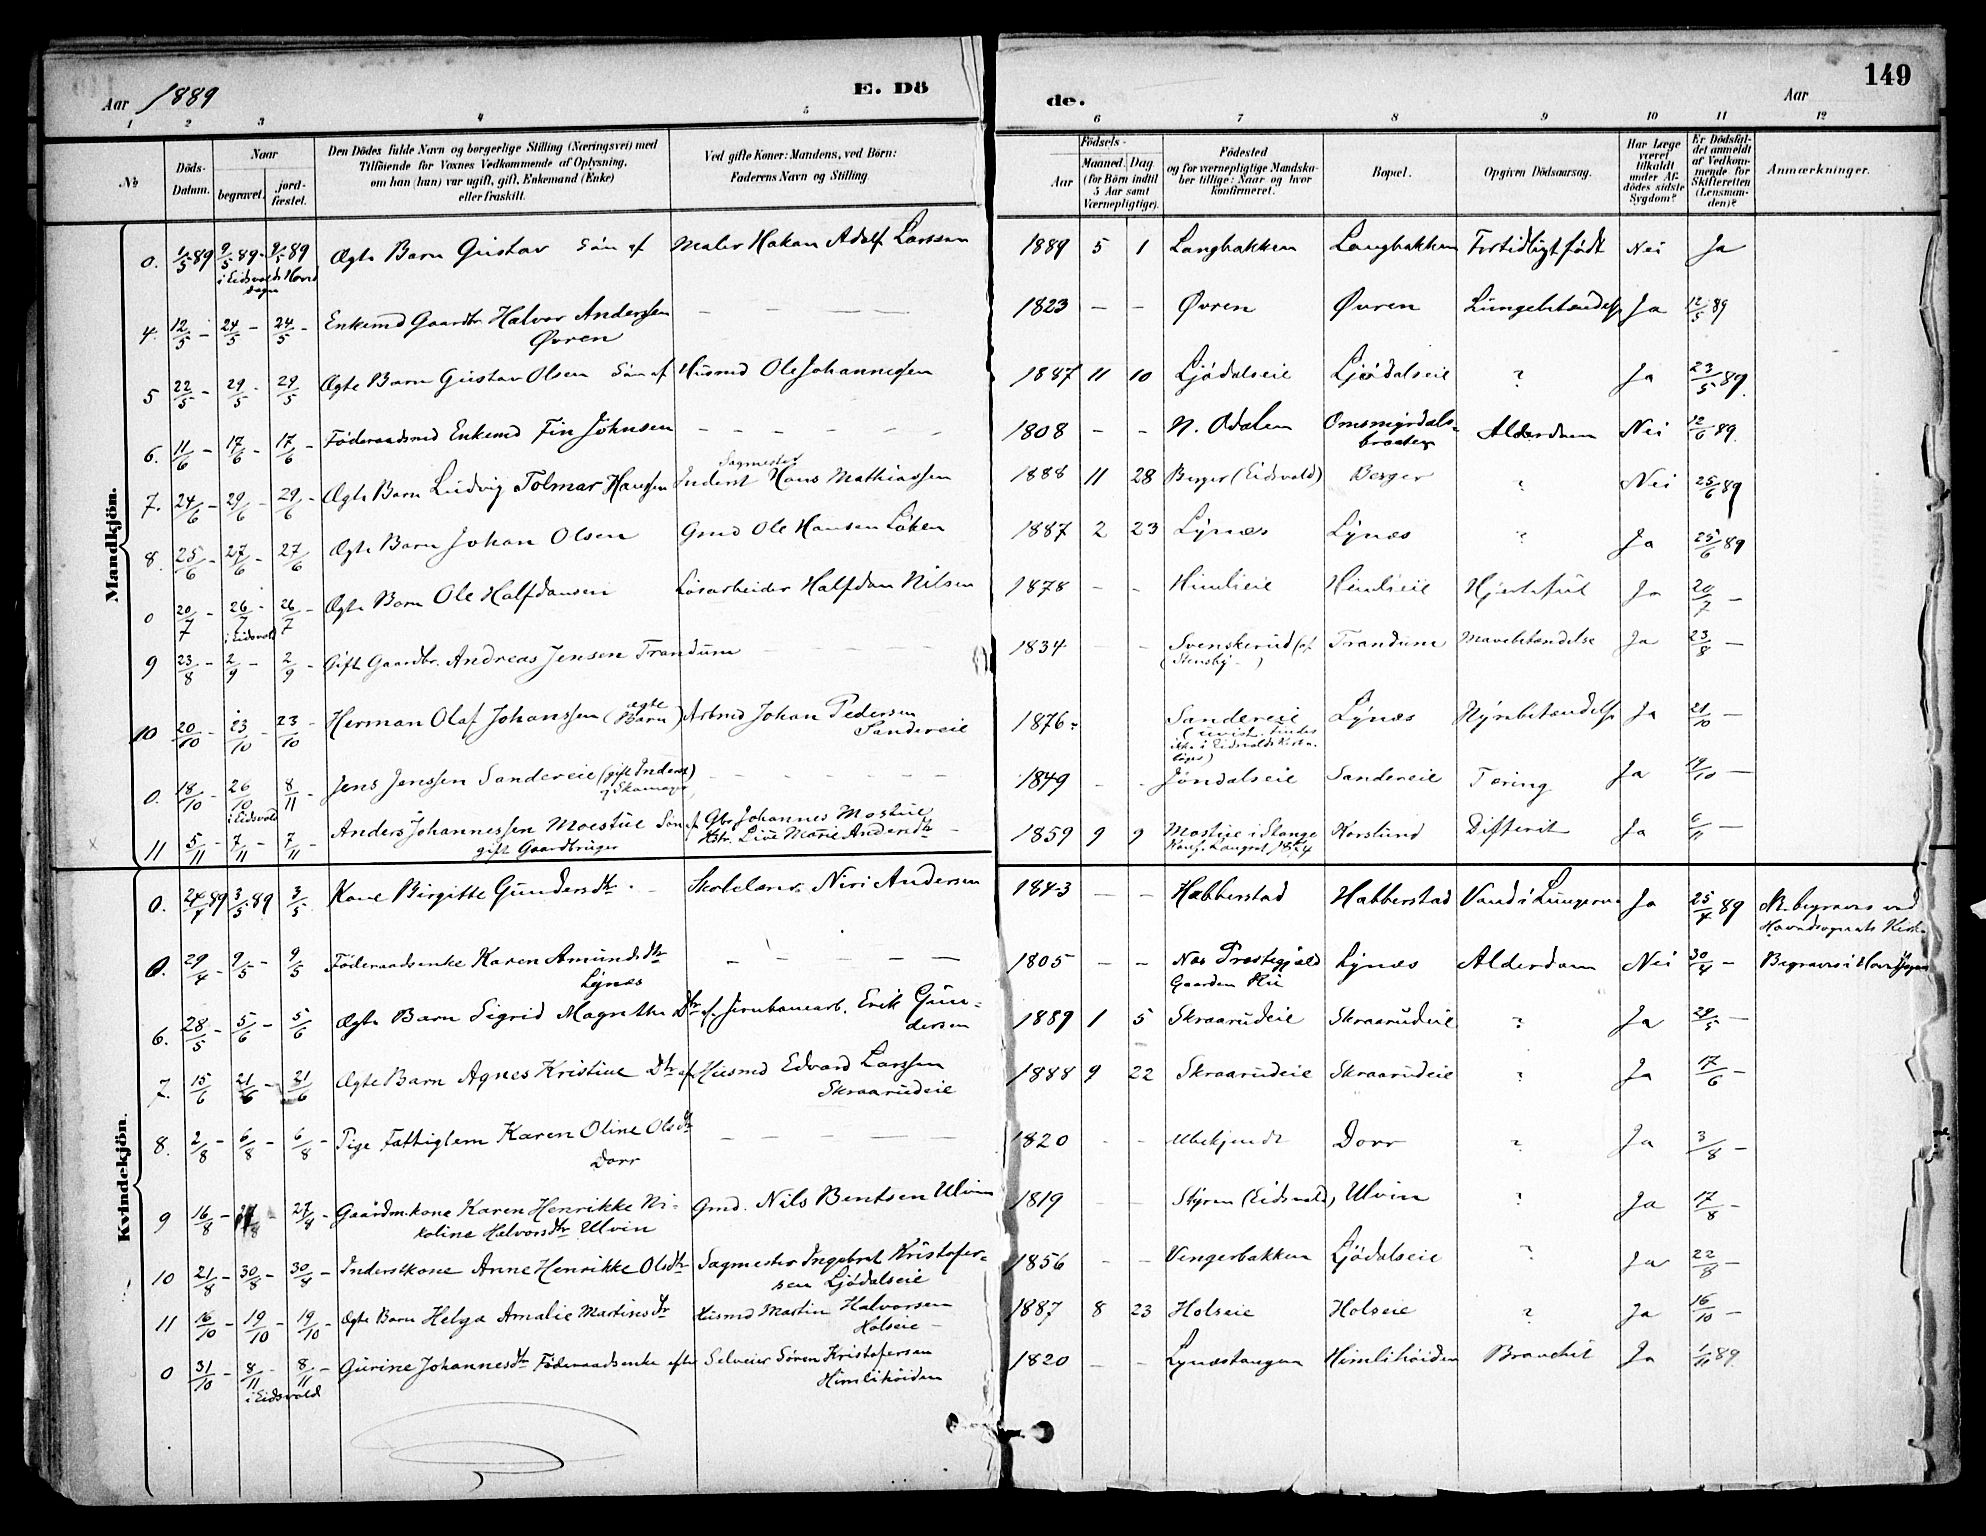 149
Aar 1889 E. Dö de. Aar
1 2 3 4 5 6 7 8 9 10 11 12
No Döds-Datum. Naar begravet. jord-fæstet. Den Dödes fulde Navn og borgerlige Stilling (Næringsvei) med Tilföiende for Voxnes Vedkommende af Oplysning, om han (hun) var ugift, gift, Enkemand (Enke) eller fraskilt. Ved gifte Koner: Mandens, ved Börn: Faderens Navn og Stilling Födsels- Aar Maaned. Dag (for Börn indtil 5 Aar samt Værnepligtige). Födested og for værnepligtige Mandska-ber tillige: Naar og hvor konfirmeret. Bopæl. Opgiven Dödsaarsag. Har Læge været tilkaldt under Af-dödes sidste Sygdom? Er Dödsfal-det anmeldt af Vedkom-mende for Skifteretten (Lensman-den)? Anmærkninger.
Mandkjön.
0. 1/5 89 9/5 89 - 9/5 89 Ægte Barn Gustav Sön af Maler Hakan Adolf Larssen 1889 5 1 Langbakken Langbakken Fortidligt födt Nei Ja
i Eidsvold
4. 12/5 - 24/5 - 24/5 - Enkemd Gaardbr. Halvor Anderssen — — — — 1823 — — Øvren Øvren Lungebetændelse Ja 12/5 89
Øvren
5 22/5 - 29/5 - 29/5 Ægte Barn Gustav Olsen Sön af Husmd Ole Johannessen 1887 11 10 Ljödalseie Ljödalseie ? Ja 23/5 89.
6. 11/6 - 17/6 - 17/6 - Föderaadsmd Enkemd Fin Johnsen — — — — — 1808 — — N. Odalen Nei 12/6 89.
Alderdom
Sagmester
7. 24/6 - 29/6 - 29/6 - Ægte Barn Ludvig Tolmar Hansen Inderst Hans Mathiassen 1888 11 28 Berger (Eidsvold) Berger ? Nei 25/6 89
8. 25/6 - 27/6 - 27/6 Ægte Barn Johan Olsen Gmd Ole Hansen Löken 1887 2 23 Lynæs Lynæs ? Ja 25/6 89
0 20/7 - 26/7 - 26/7 - Ægte Barn Ole Halfdansen Lösarbeider Halfdan Nilsen 1878 — — Himlieie Himlieie Hjertefeil Ja 20/7 —
i Eidsvold
9 23/8 - 2/9 - 2/9 - Gift Gaardbr. Andreas Jensen Trandum — — — — 1834 — — Svenskerud (af Trandum Mavebetændelse Ja 23/8 —
Stensby - )
10 20/10 - 23/10 - 23/10 - Herman Olaf Johanssen (ægte Barn) Arbmd Johan Pedersen 1876 Sandereie Lynæs Nyrebetændelse Ja 21/10 —
Sandereie
(uvist. findes
ikke i Eidsvolds Kirke-
böger)
0. 18/10 - 26/10 8/11 Jens Jenssen Sandereie (gift Inderst — — — — 1849 — — Jöndalseie Sandereie Tæring Ja 19/10 —
i Eidsvold
11 5/11 - 7/11 - 7/11 - Anders Johannessen Moestue Sön af Gbr Johannes Mostue 1859 9 9 Mostue i Stange Korslund Difterit Ja 6/11 —
gift Gaardbruger Live Marie Andersdtr —
Kvindekjön.
0. 24/4 89 3/5 89 3/5 Kone Birgitte Gundersdtr. Skolelærer Niri Andersen 1843 — — Habberstad Habberstad Vand i Lungerne Ja 25/4 89 begraves ved
Hovedsognets Kirke
0. 29/4 - 9/5 - 9/5 Föderaadsenke Karen Amundsdtr — — — — 1805 — — Nes Præstegjæld Lynæs Alderdom Nei 30/4 — Begraves i
Lynæs Gaarden
6. 28/5 - 5/6 - 5/6 Ægte Barn Sigrid Magrethe Dtr af Jernbanearb. Erik Gun- 1889 1 5 Skraarudeie Skraarudeie ? Ja 29/5 —
dersen
7. 15/6 21/6 - 21/6 Ægte Barn Agnes Kristine Dtr af Husmd Edvard Larssen 1888 9 22 Skraarudeie Skraarudeie ? Ja 17/6 —
Skraarudeie
8. 2/8 - 6/8 - 6/8 - Pige Fattiglem Karen Oline Olsdtr — — — — 1820 — — Ubekjendt Dorr ? Ja 3/8 —
Dorr
9 16/8 - 27/8 - 27/8 - Gaardmkone Karen Henrikke Ni- Gmd. Nils Bentsen Ulvin 1819 — — Styren (Eidsvold) Ulvin ? Ja 17/8 —
koline Halvorsdtr Ulvin
10 21/8 - 30/8 - 30/8 - Inderstkone Anne Henrikke Olsdtr Sagmester Ingebret Kristofer- 1856 — — Vengerbakken Ljödalseie ? Ja 22/8 —
sen Ljödalseie
11 16/10 - 19/10 - 19/10 - Ægte Barn Helga Amalie Martinsdtr Husmd Martin Halvorsen 1887 8 23 Holseie Holseie ? Ja 16/10 —
Holseie —
0 31/10 - 8/11 - 8/11 - Gurine Johannesdtr Föderaadsenke efter Selveier Sören Kristofersen 1820 — — Lynæstangen Himlihöiden Bronchit Ja 1/11 89
i Eidsvold Himlihöiden